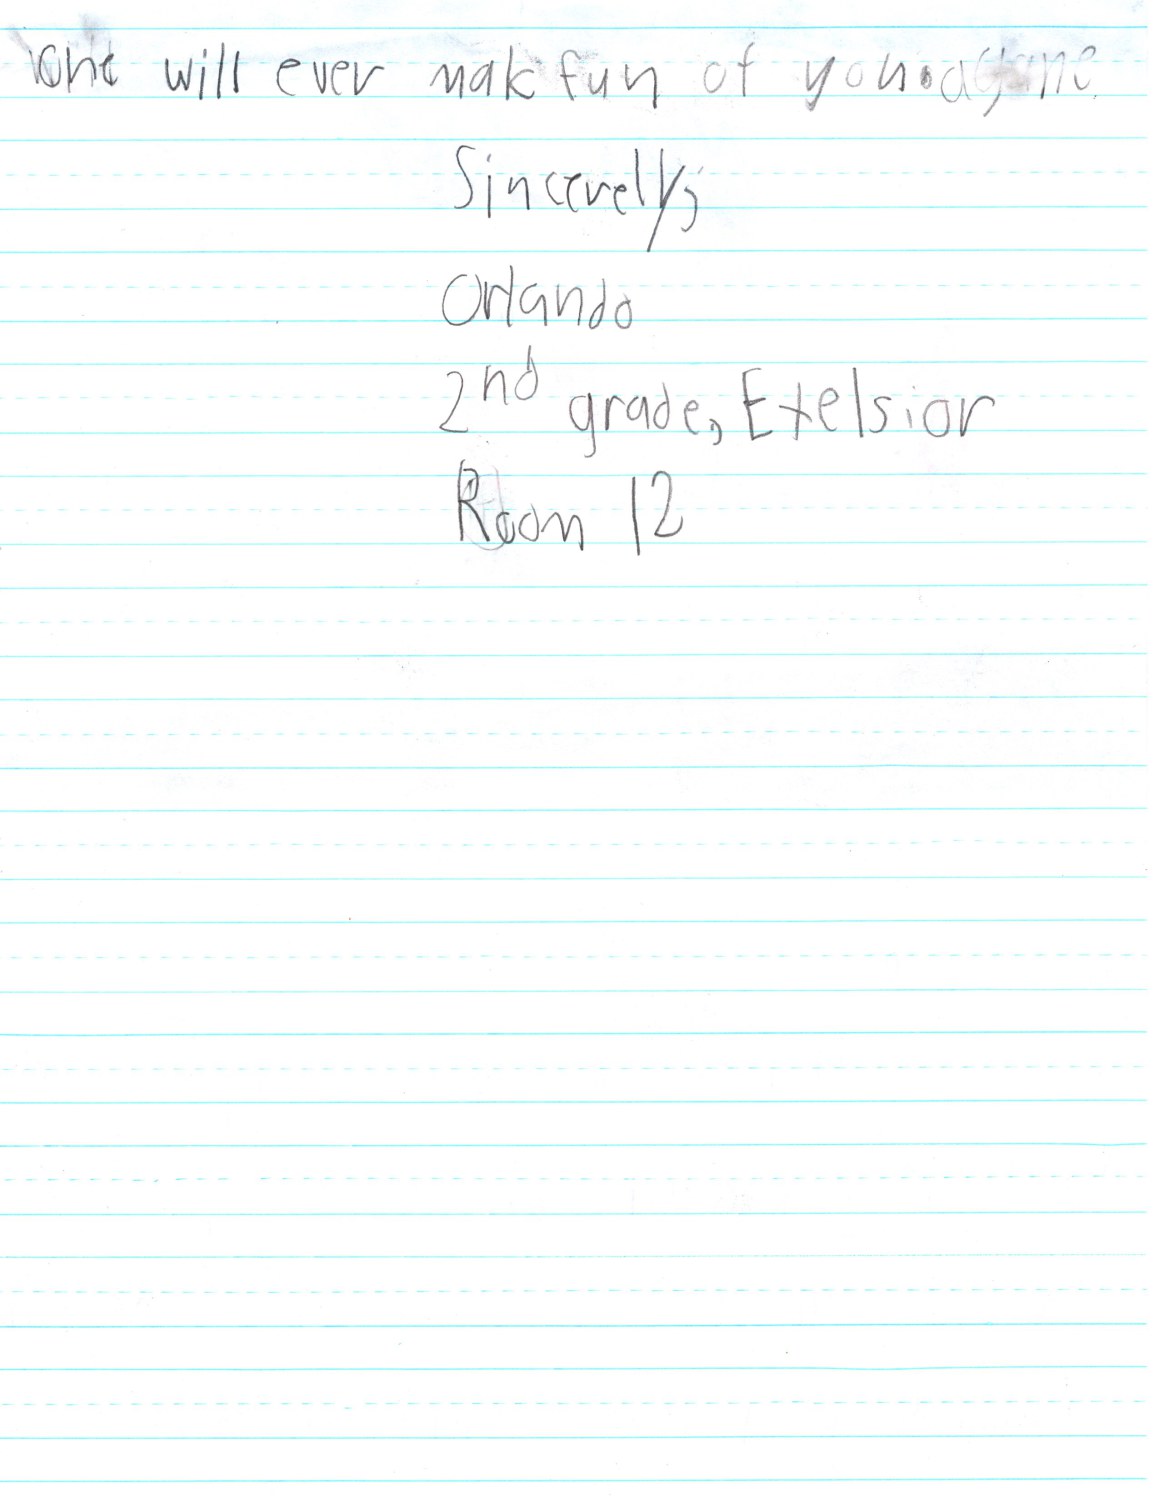 one will ever mak fun of you. agane.
Sincerely,
Orlando
2nd grade, Exelsior
Room 12